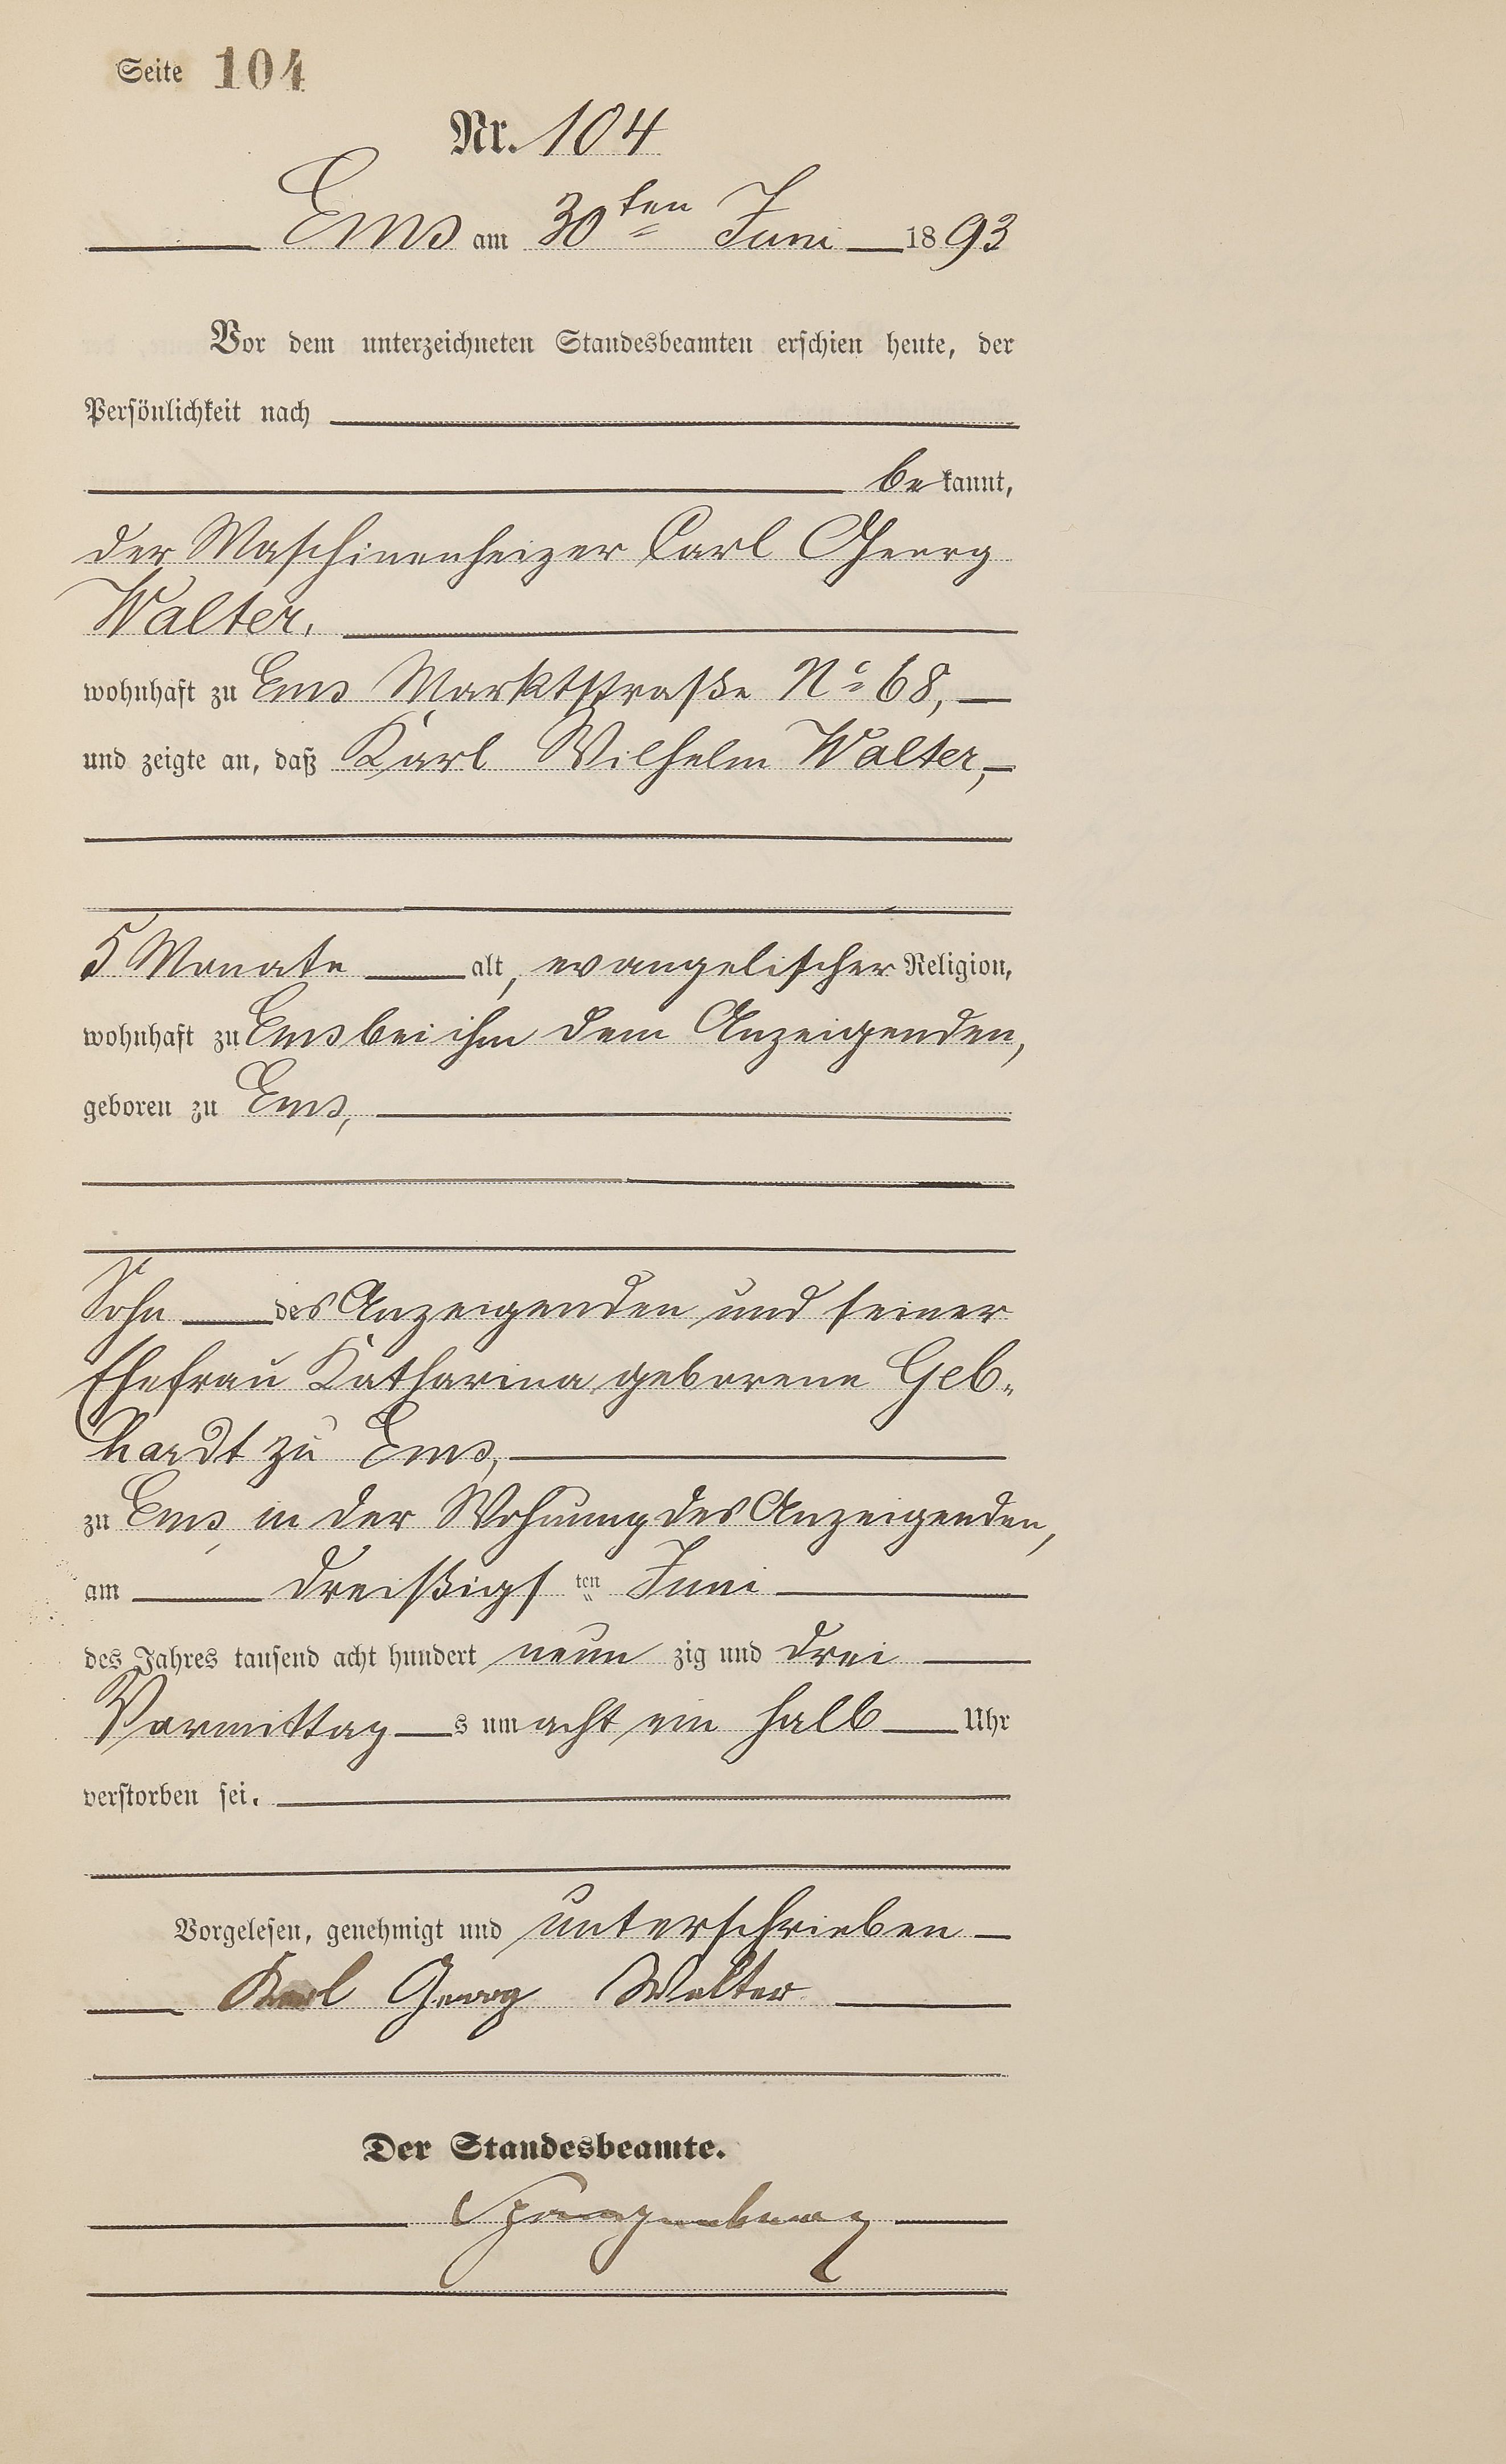 Seite 104
Nr. 104
Ems am 30ten Juni 1893
Vor dem unterzeichneten Standesbeamten erschien heute, der
Persönlichkeit nach
bekannt,
der Maschinenheizer Carl Georg
Walter.
wohnhaft zu Ems Marktstraße No 68,
und zeigte an, daß Karl Wilhelm Walter,
5 Monate alt, evangelischer Religion,
wohnhaft zu Ems bei ihm dem Anzeigenden,
geboren zu Ems,
Sohn des Anzeigenden und seiner
Ehefrau Katharina geborene Geb-
hardt zu Ems,
zu Ems, in der Wohnung des Anzeigenden,
am dreißigsten Juni
des Jahres tausend acht hundert neunzig und drei
Vormittags um acht ein halb Uhr
verstorben sei.
Vorgelesen, genehmigt und unterschrieben
Karl Georg Walter
Der Standesbeamte.
Spangenberg